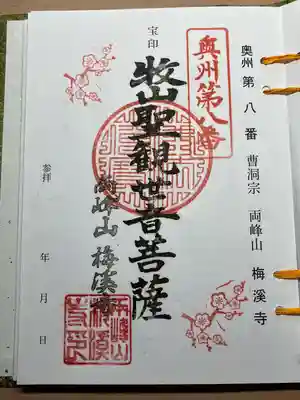 奥州 第 八 番 曹洞宗 両峰山 梅溪寺
奥州第八番
宝印
牧山聖観世音菩薩
両峰山 梅溪寺
参拝
年 月 日